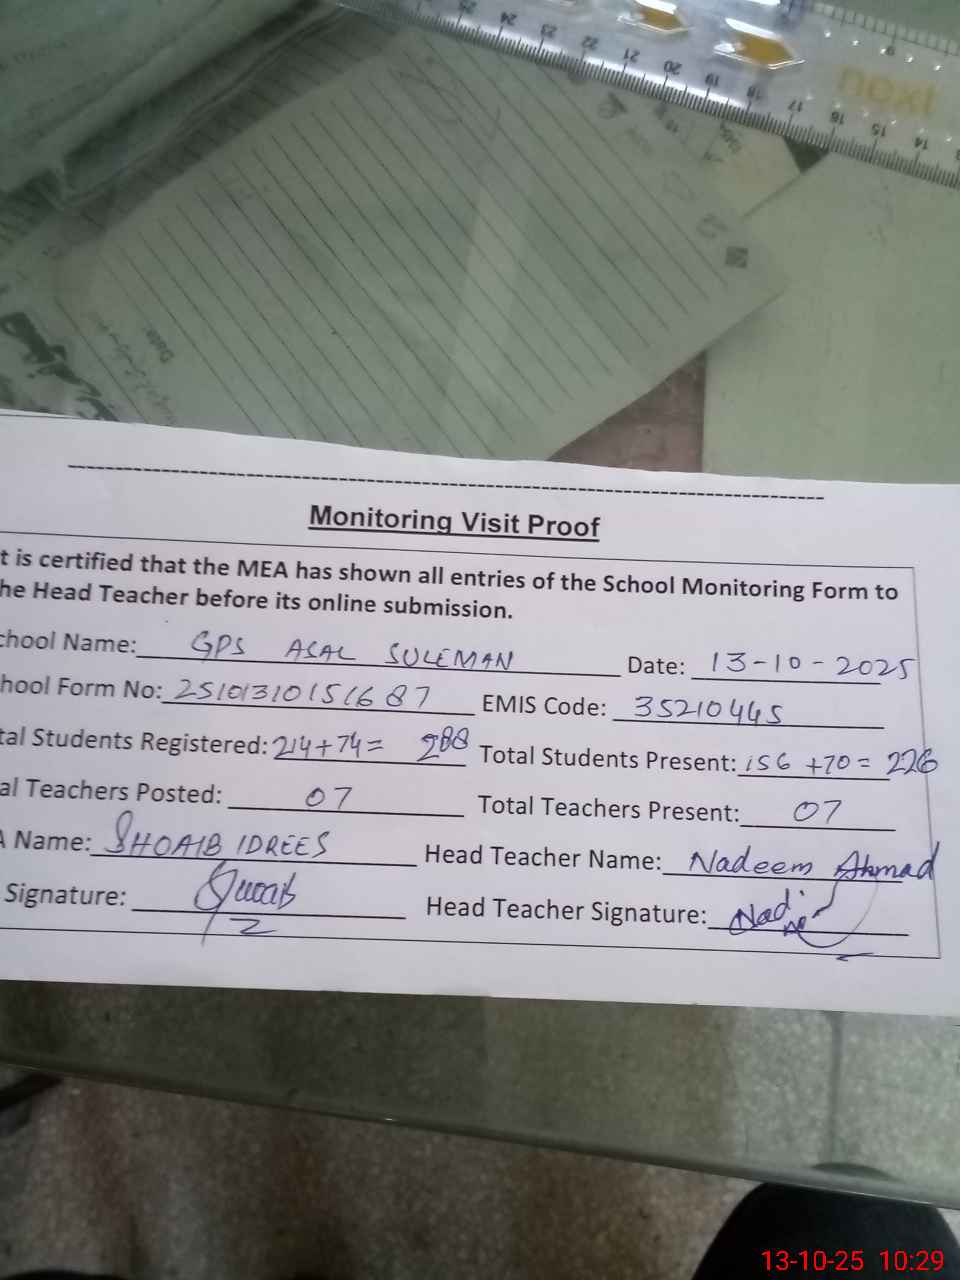 25 24 23 22 21 20 19 18 17 16 15 14
next
Date
Monitoring Visit Proof
t is certified that the MEA has shown all entries of the School Monitoring Form to
he Head Teacher before its online submission.
chool Name: GPS ASAL SULEMAN Date: 13-10-2025
hool Form No: 25101310151687 EMIS Code: 35210445
tal Students Registered: 214+74= 288 Total Students Present: 156+70= 226
al Teachers Posted: 07 Total Teachers Present: 07
A Name: SHOAIB IDREES Head Teacher Name: Nadeem Ahmad
Signature: Shoaib Head Teacher Signature:
13-10-25 10:29